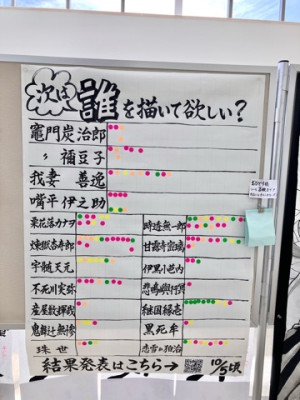 次は
誰を描いて欲しい？
竈門炭治郎
〃 禰豆子
我妻 善逸
嘴平 伊之助
栗花落カナヲ
時透無一郎
煉獄杏寿郎
甘露寺蜜璃
宇髄天元
伊黒小芭内
不死川実弥
悲鳴嶼行冥
産屋敷輝哉
継国縁壱
鬼舞辻無惨
黒死牟
珠世
結果発表はこちら→
10/5頃